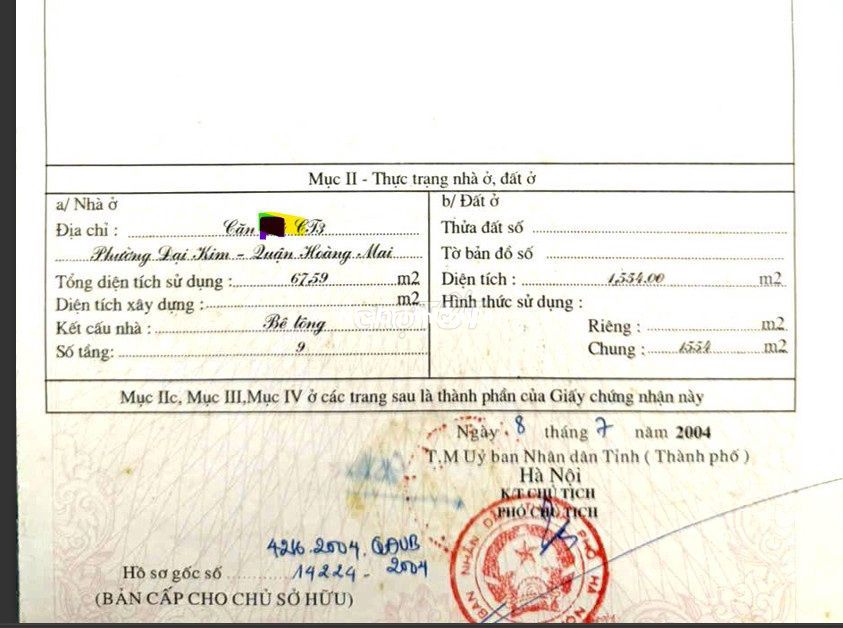 Mục II - Thực trạng nhà ở, đất ở
a/ Nhà ở
Địa chỉ : Căn CT3
Phường Đại Kim - Quận Hoàng Mai
Tổng diện tích sử dụng : 67,59 m2
Diện tích xây dựng : m2
Kết cấu nhà : Bê tông
Số tầng: 9
b/ Đất ở
Thửa đất số
Tờ bản đồ số
Diện tích : 1,554.00 m2
Hình thức sử dụng :
Riêng : m2
Chung : 1554 m2
chợTỐT
Mục IIc, Mục III,Mục IV ở các trang sau là thành phần của Giấy chứng nhận này
Ngày 8 tháng 7 năm 2004
T.M Uỷ ban Nhân dân Tỉnh ( Thành phố )
Hà Nội
K/T CHỦ TỊCH
PHÓ CHỦ TỊCH
4216.2004.QĐUB
Hồ sơ gốc số 14224 - 2004
(BẢN CẤP CHO CHỦ SỞ HỮU)
BAN NHÂN DÂN PHỐ HÀ NỘI